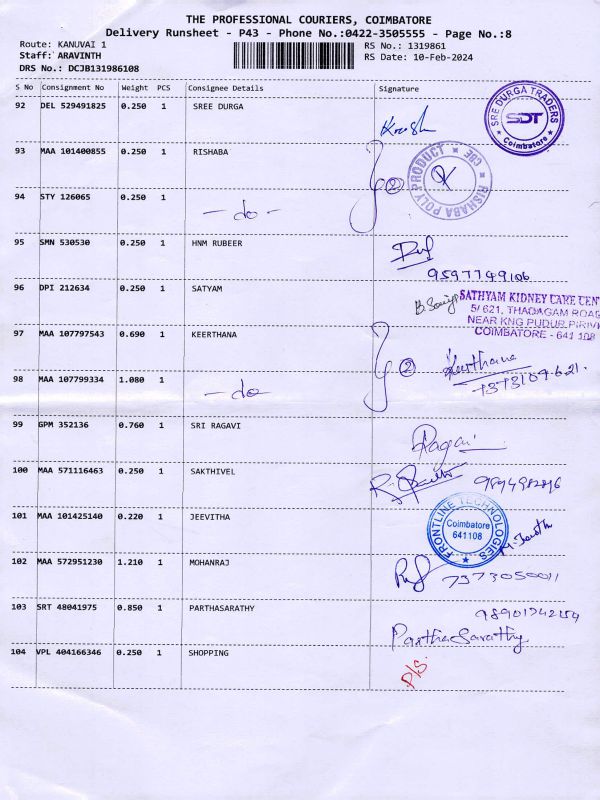 THE PROFESSIONAL COURIERS, COIMBATORE
Delivery Runsheet - P43 - Phone No.:0422-3505555 - Page No.:8
Route: KANUVAI 1
RS No.: 1319861
Staff: ARAVINTH
RS Date: 10-Feb-2024
DRS No.: DCJB131986108
S No Consignment No Weight PCS Consignee Details Signature
92 DEL 529491825 0.250 1 SREE DURGA
SRE DURGA TRADERS
SDT
Coimbatore
93 MAA 101400855 0.250 1 RISHABA
RISHABA POLY PRODUCT CBE
2
94 STY 126065 0.250 1
- do -
95 SMN 530530 0.250 1 HNM RUBEER
9597749106
96 DPI 212634 0.250 1 SATYAM
SATHYAM KIDNEY CARE CENT
5/ 621, THADAGAM ROAD
NEAR KNG PUDUR PIRIVU
COIMBATORE - 641 108
97 MAA 107797543 0.690 1 KEERTHANA
2 Keerthana
98 MAA 107799334 1.080 1
- do
99 GPM 352136 0.760 1 SRI RAGAVI
100 MAA 571116463 0.250 1 SAKTHIVEL
101 MAA 101425140 0.220 1 JEEVITHA
FRONTLINE TECHNOLOGIES
Coimbatore
641108
102 MAA 572951230 1.210 1 MOHANRAJ
7373050011
103 SRT 48041975 0.850 1 PARTHASARATHY
ParthaSarathy
104 VPL 404166346 0.250 1 SHOPPING
P/S